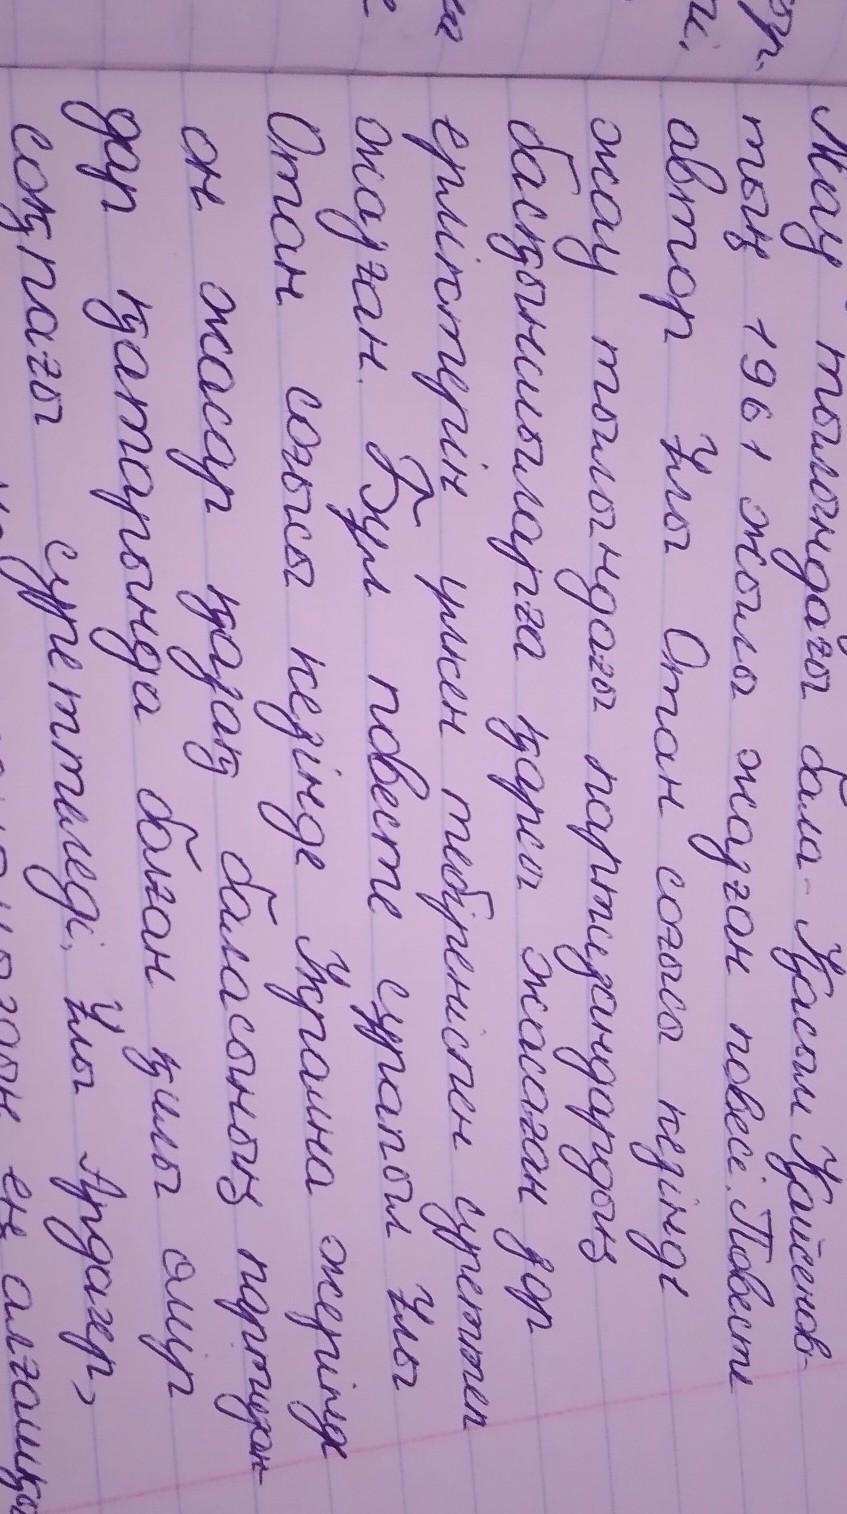 Жау тылындағы бала - Қасым Қайсенов-
тың 1961 жылы жазған повесі. Повесте
автор Ұлы Отан соғысы кезінде
жау тылындағы партизандардың
басқыншыларға қарсы жасаған зор
ерліктерін үлкен тебіреніспен суреттеп
жазған. Бұл повесте сұрапыл Ұлы
Отан соғысы кезінде Украина жерінде
он жасар қазақ баласының партизан-
дар қатарында болған қилы өмір
соқпағы суреттеледі. Ұлы Ардагер,
ең алғашқы